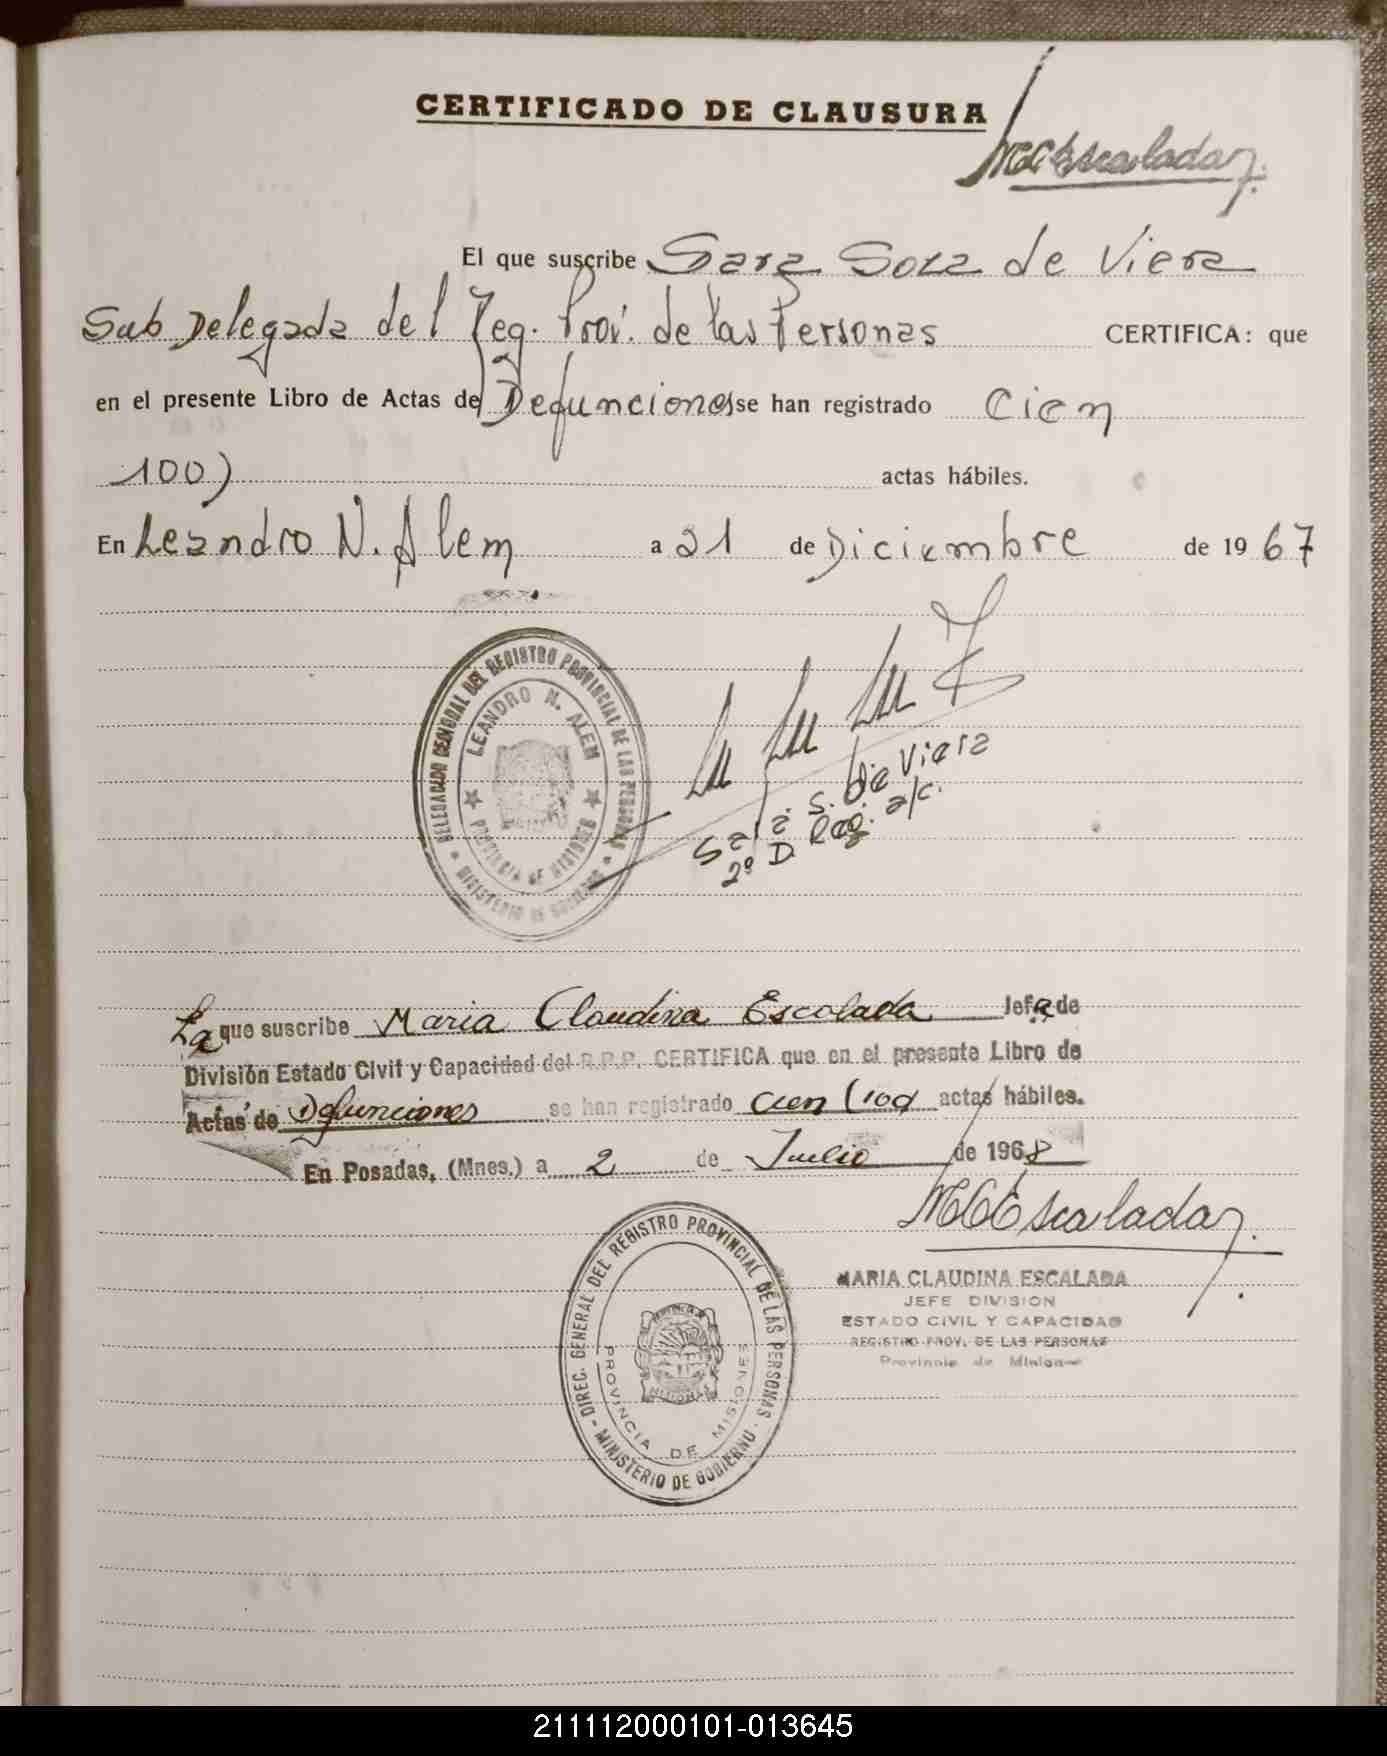 CERTIFICADO DE CLAUSURA
MCEscalada
El que suscribe Sara Sosa de Viera
Sub Delegada del Reg. Prov. de las Personas CERTIFICA: que
en el presente Libro de Actas de Defunciones se han registrado Cien
100) actas hábiles.
En Leandro N. Alem a 21 de Diciembre de 1967
DELEGACION DEL REGISTRO PROVINCIAL DE LAS PERSONAS
LEANDRO N. ALEM
PROVINCIA DE MISIONES
MINISTERIO DE GOBIERNO
Sara S. de Viera
2º D. Reg. a/c.
La que suscribe Maria Claudina Escalada Jefa de
División Estado Civil y Capacidad del R.P.P. CERTIFICA que en el presente Libro de
Actas de Defunciones se han registrado cien (100) actas hábiles.
En Posadas, (Mnes.) a 2 de Julio de 1968
MCEscalada
DIREC. GENERAL DEL REGISTRO PROVINCIAL DE LAS PERSONAS
PROVINCIA DE MISIONES
- MINISTERIO DE GOBIERNO -
MARIA CLAUDINA ESCALADA
JEFE DIVISION
ESTADO CIVIL Y CAPACIDAD
REGISTRO PROV. DE LAS PERSONAS
Provincia de Misiones
211112000101-013645